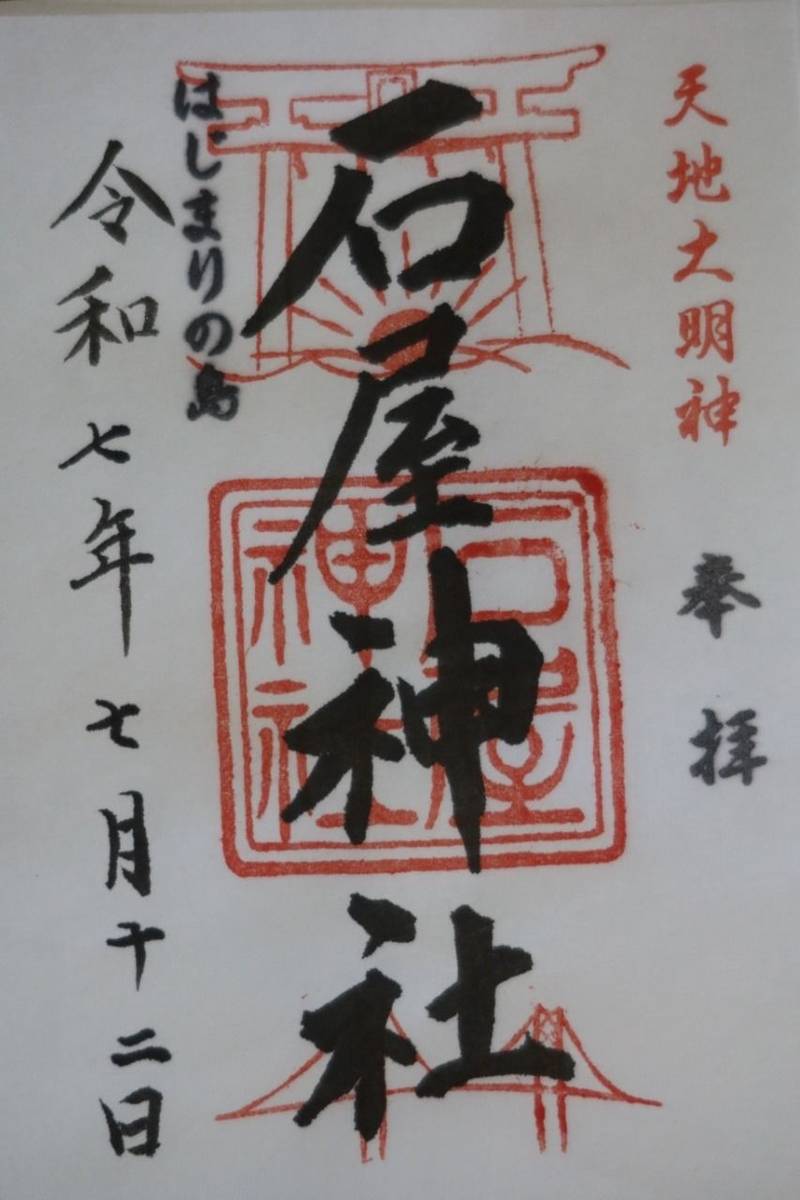 天地大明神
奉拝
石屋神社
石屋神社
はじまりの島
令和七年七月十二日